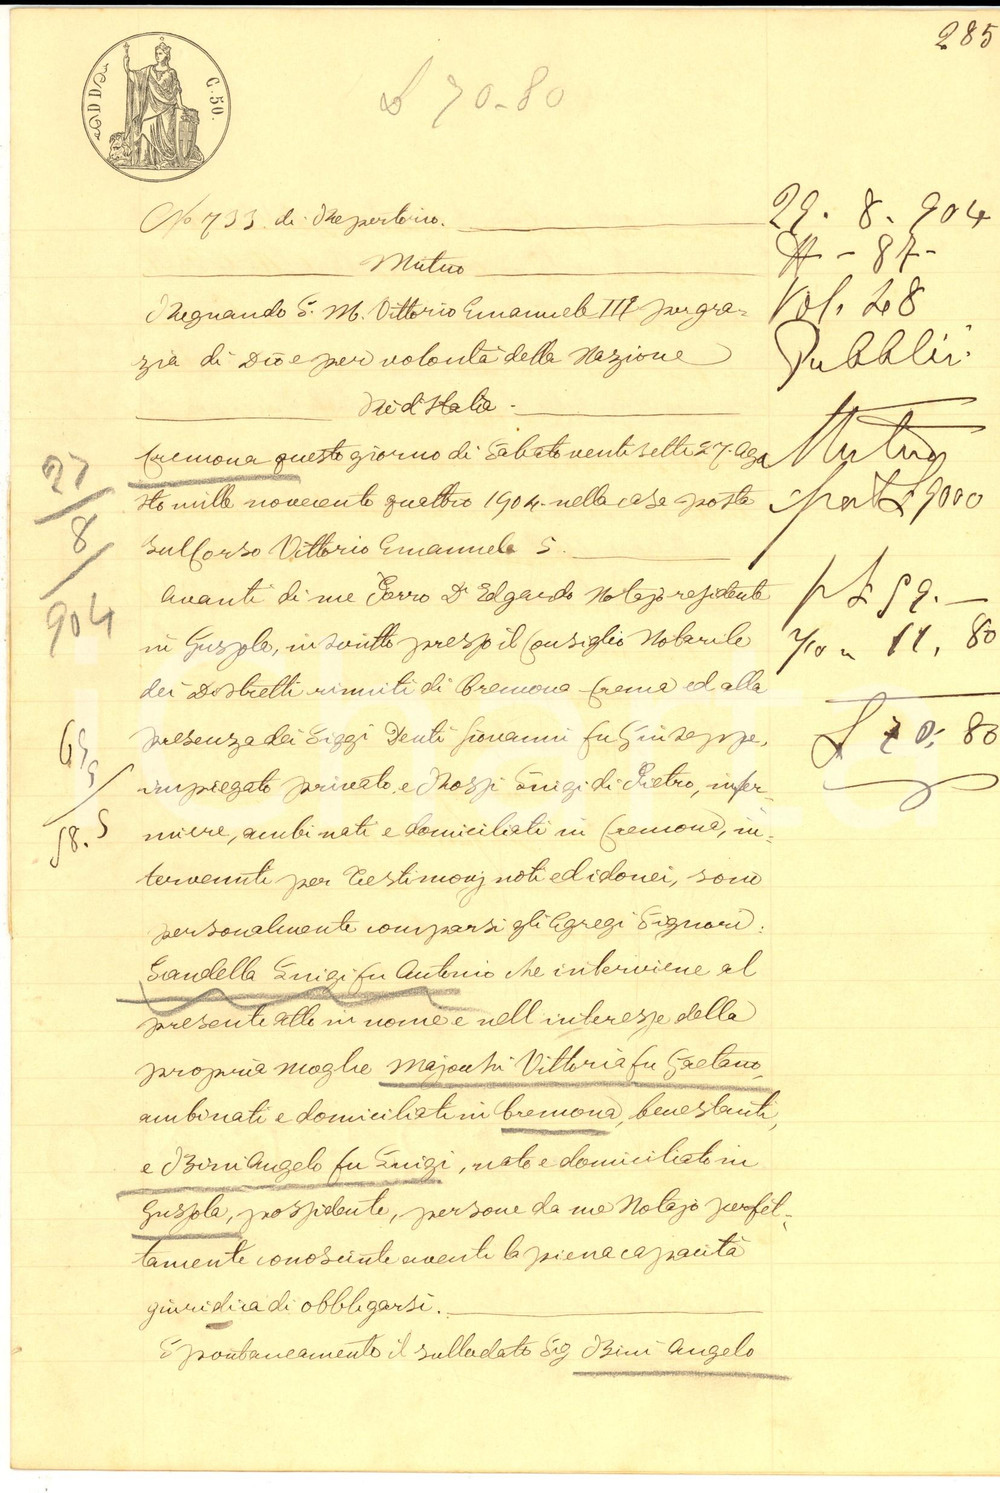 285
C. 50.
£ 70-80
No 733 di Repertorio.
Mutuo
Regnando S. M. Vittorio Emanuele III per gra=
zia di Dio e per volontà della Nazione
Re d'Italia.
Cremona questo giorno di Sabato venti sette 27. Ago
sto mille novecento quattro 1904. nella casa posta
sul Corso Vittorio Emanuele 5.
Avanti di me Ferro Dr Edgardo Notajo residente
in Gussola, inscritto presso il Consiglio Notarile
dei Distretti riuniti di Cremona Crema ed alla
presenza dei Siggi Denti Giovanni fu Giuseppe,
impiegato privato e Rossi Luigi di Pietro, infer-
miere, ambi nati e domiciliati in Cremona, in-
tervenuti per Testimonj noti ed idonei, sono
personalmente comparsi gli Egregi Signori:
Gandella Luigi fu Antonio che interviene al
presente atto in nome e nell'interesse della
propria moglie Majocchi Vittoria fu Gaetano,
ambi nati e domiciliati in Cremona, benestanti,
e Bini Angelo fu Luigi, nato e domiciliato in
Gussola, possidente, persone da me Notajo perfet-
tamente conosciute aventi la piena capacità
giuridica di obbligarsi.
Spontaneamente il sullodato Sig Bini Angelo
29. 8. 904
- 87 -
Vol. 48
Pubblici
Mutuo
per £ 9000
£ 59. -
11, 80
£ 70; 80
27
/
8
/
904
58.5